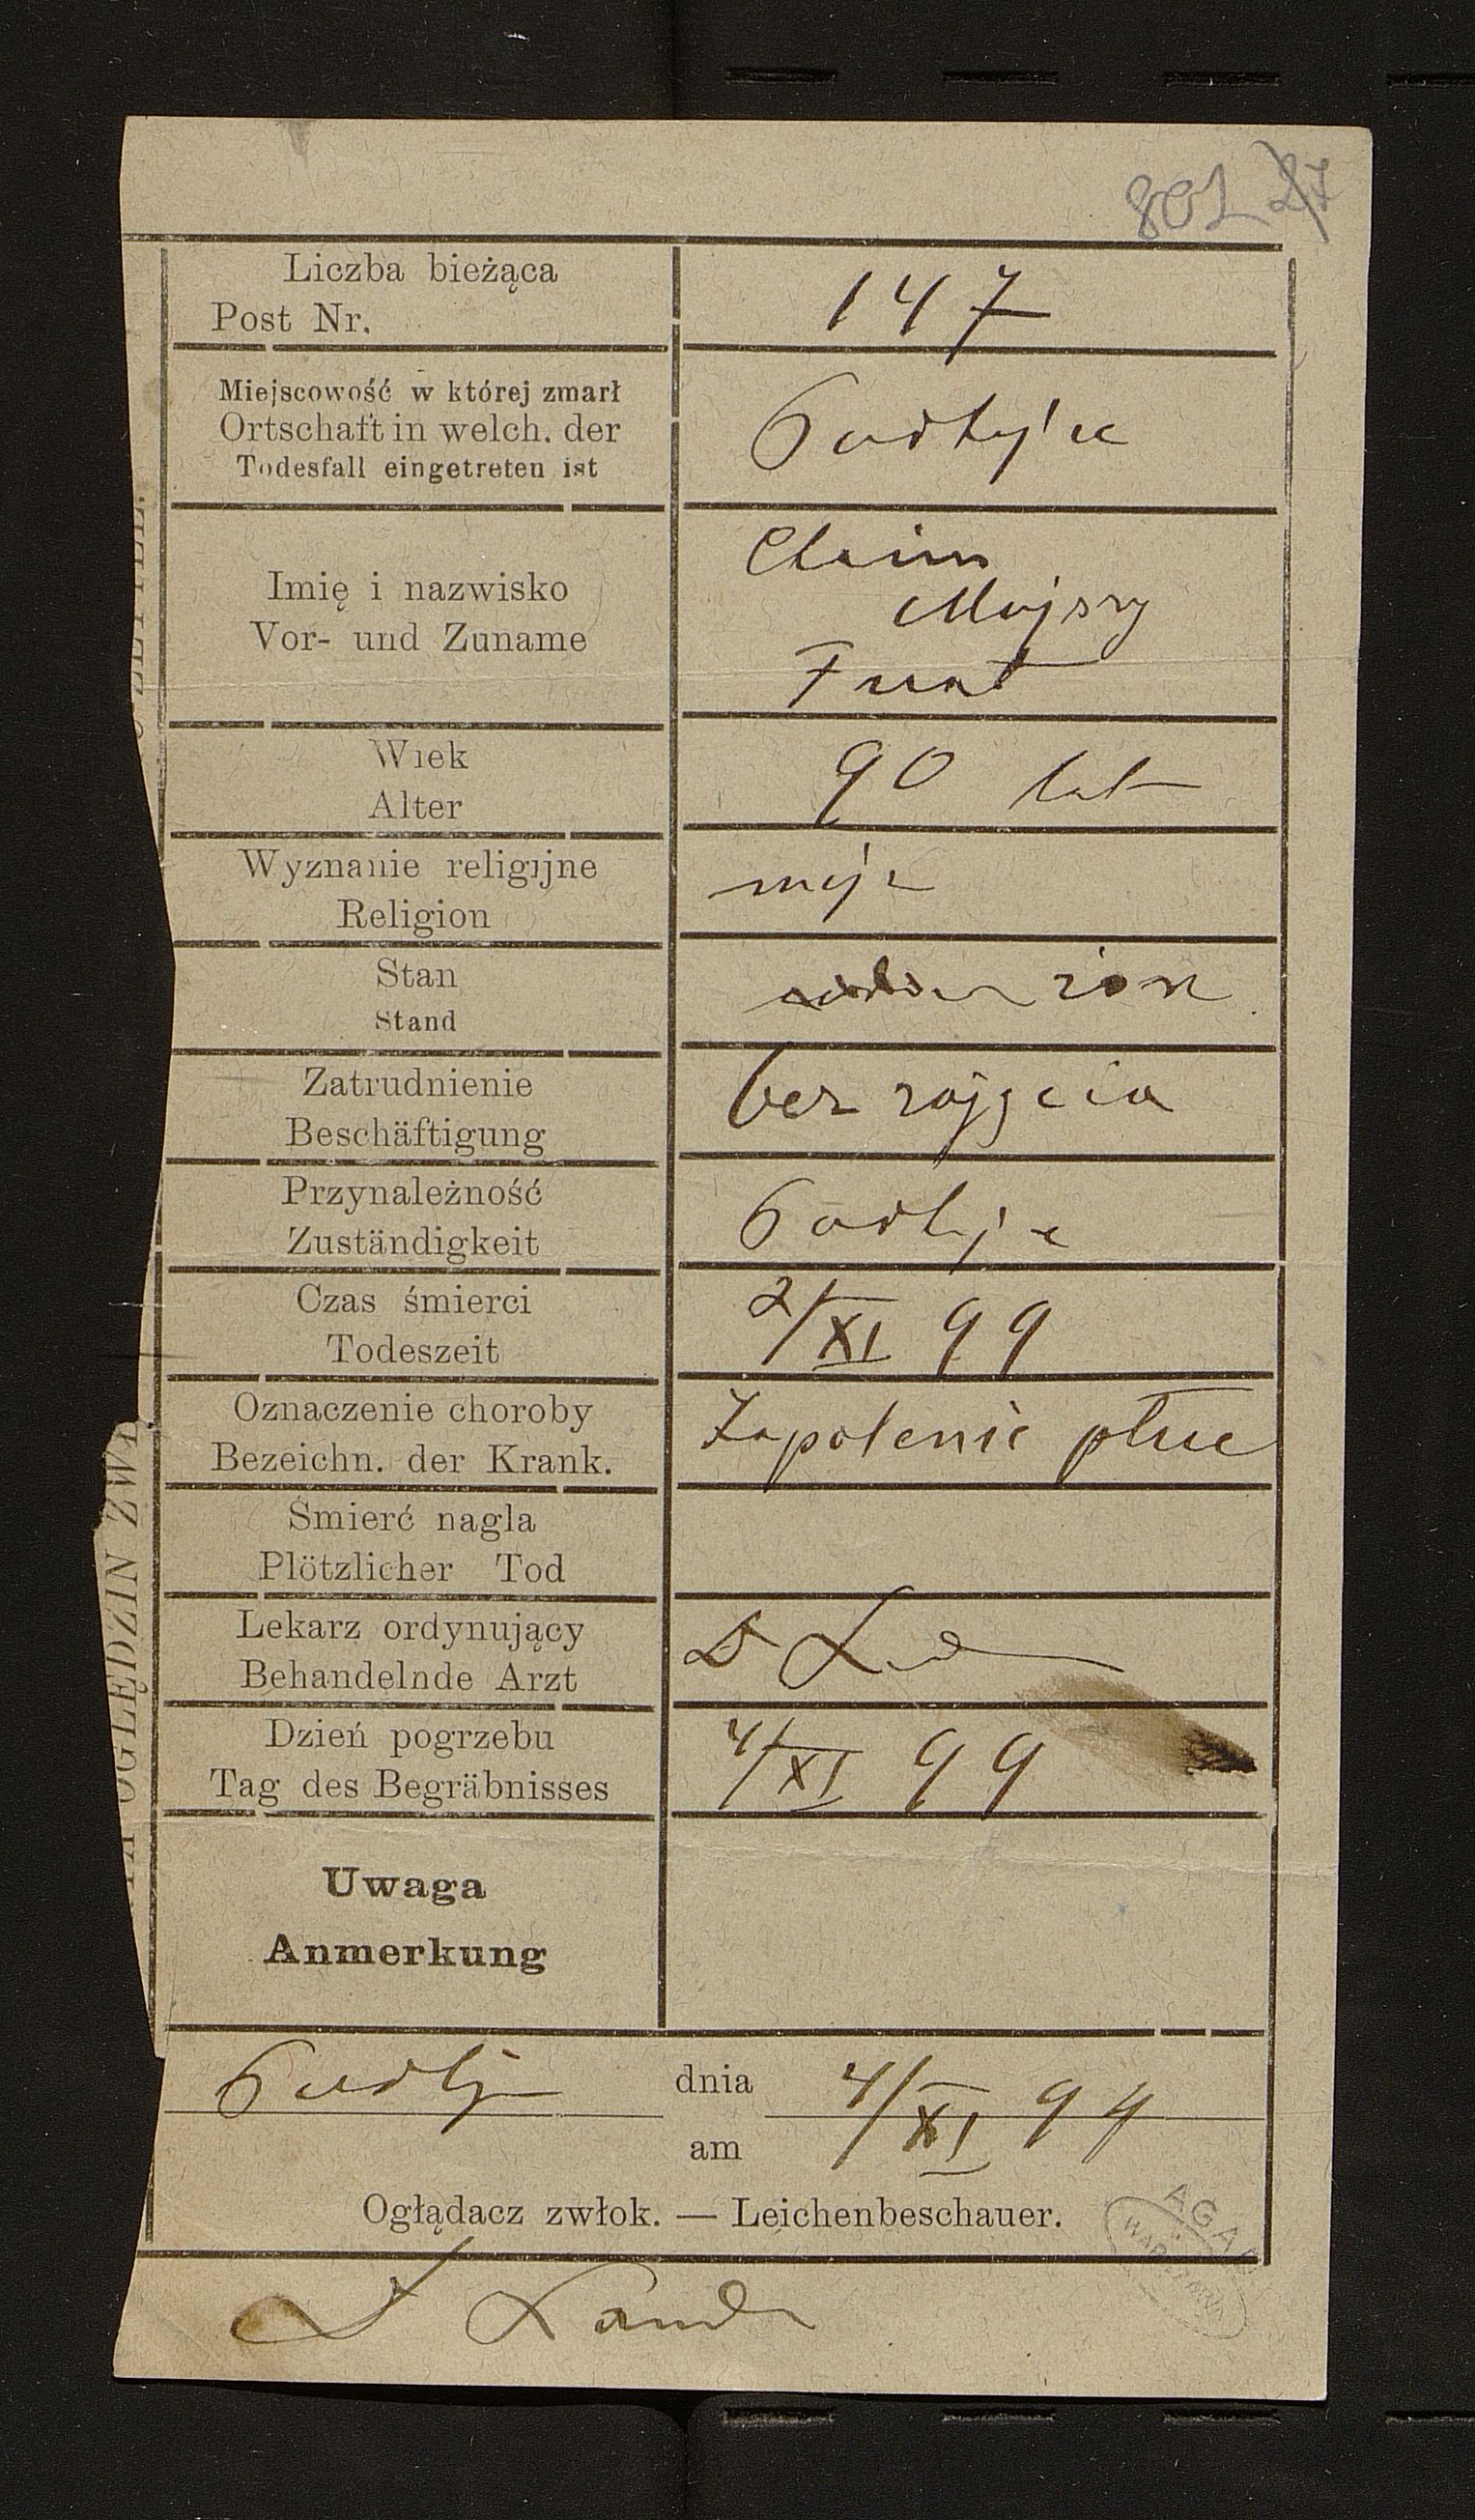 801 27
Liczba bieżąca
Post Nr.
147
Miejscowość w której zmarł
Ortschaft in welch. der
Todesfall eingetreten ist
Imię i nazwisko
Vor- und Zuname
Chaim
Mojszy
Wiek
Alter
90 lat
Wyznanie religijne
Religion
mojż
Stan
Stand
żon
Zatrudnienie
Beschäftigung
bez zajęcia
Przynależność
Zuständigkeit
Czas śmierci
Todeszeit
2/XI 99
Oznaczenie choroby
Bezeichn. der Krank.
Zapalenie płuc
Śmierć nagla
Plötzlicher Tod
Lekarz ordynujący
Behandelnde Arzt
Dzień pogrzebu
Tag des Begräbnisses
4/XI 99
Uwaga
Anmerkung
dnia
am
4/XI 99
Oglądacz zwłok. — Leichenbeschauer.
AGAD
WARSZAWA
OGLĘDZIN ZWŁ